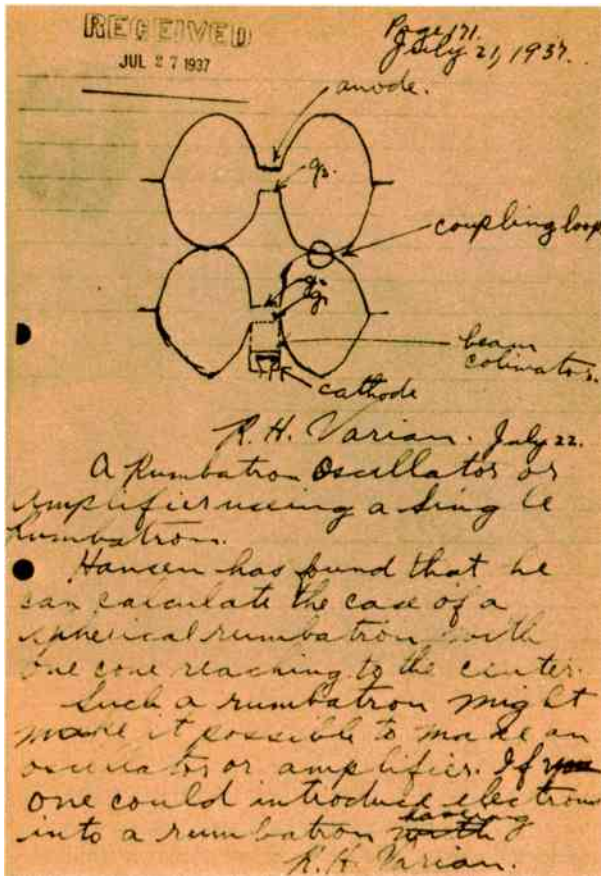 RECEIVED
JUL 27 1937
Page 171.
July 21, 1937.
anode.
g3.
coupling loop
g2
g1
beam
colimators.
cathode
R. H. Varian. July 22.
A Rumbatron Oscillator or
amplifier using a single
rumbatron.
Hansen has found that he
can calculate the case of a
spherical rumbatron with
one cone reaching to the center.
Such a rumbatron might
make it possible to make an
oscillator or amplifier. If
one could introduce electrons
into a rumbatron having
R. H. Varian.